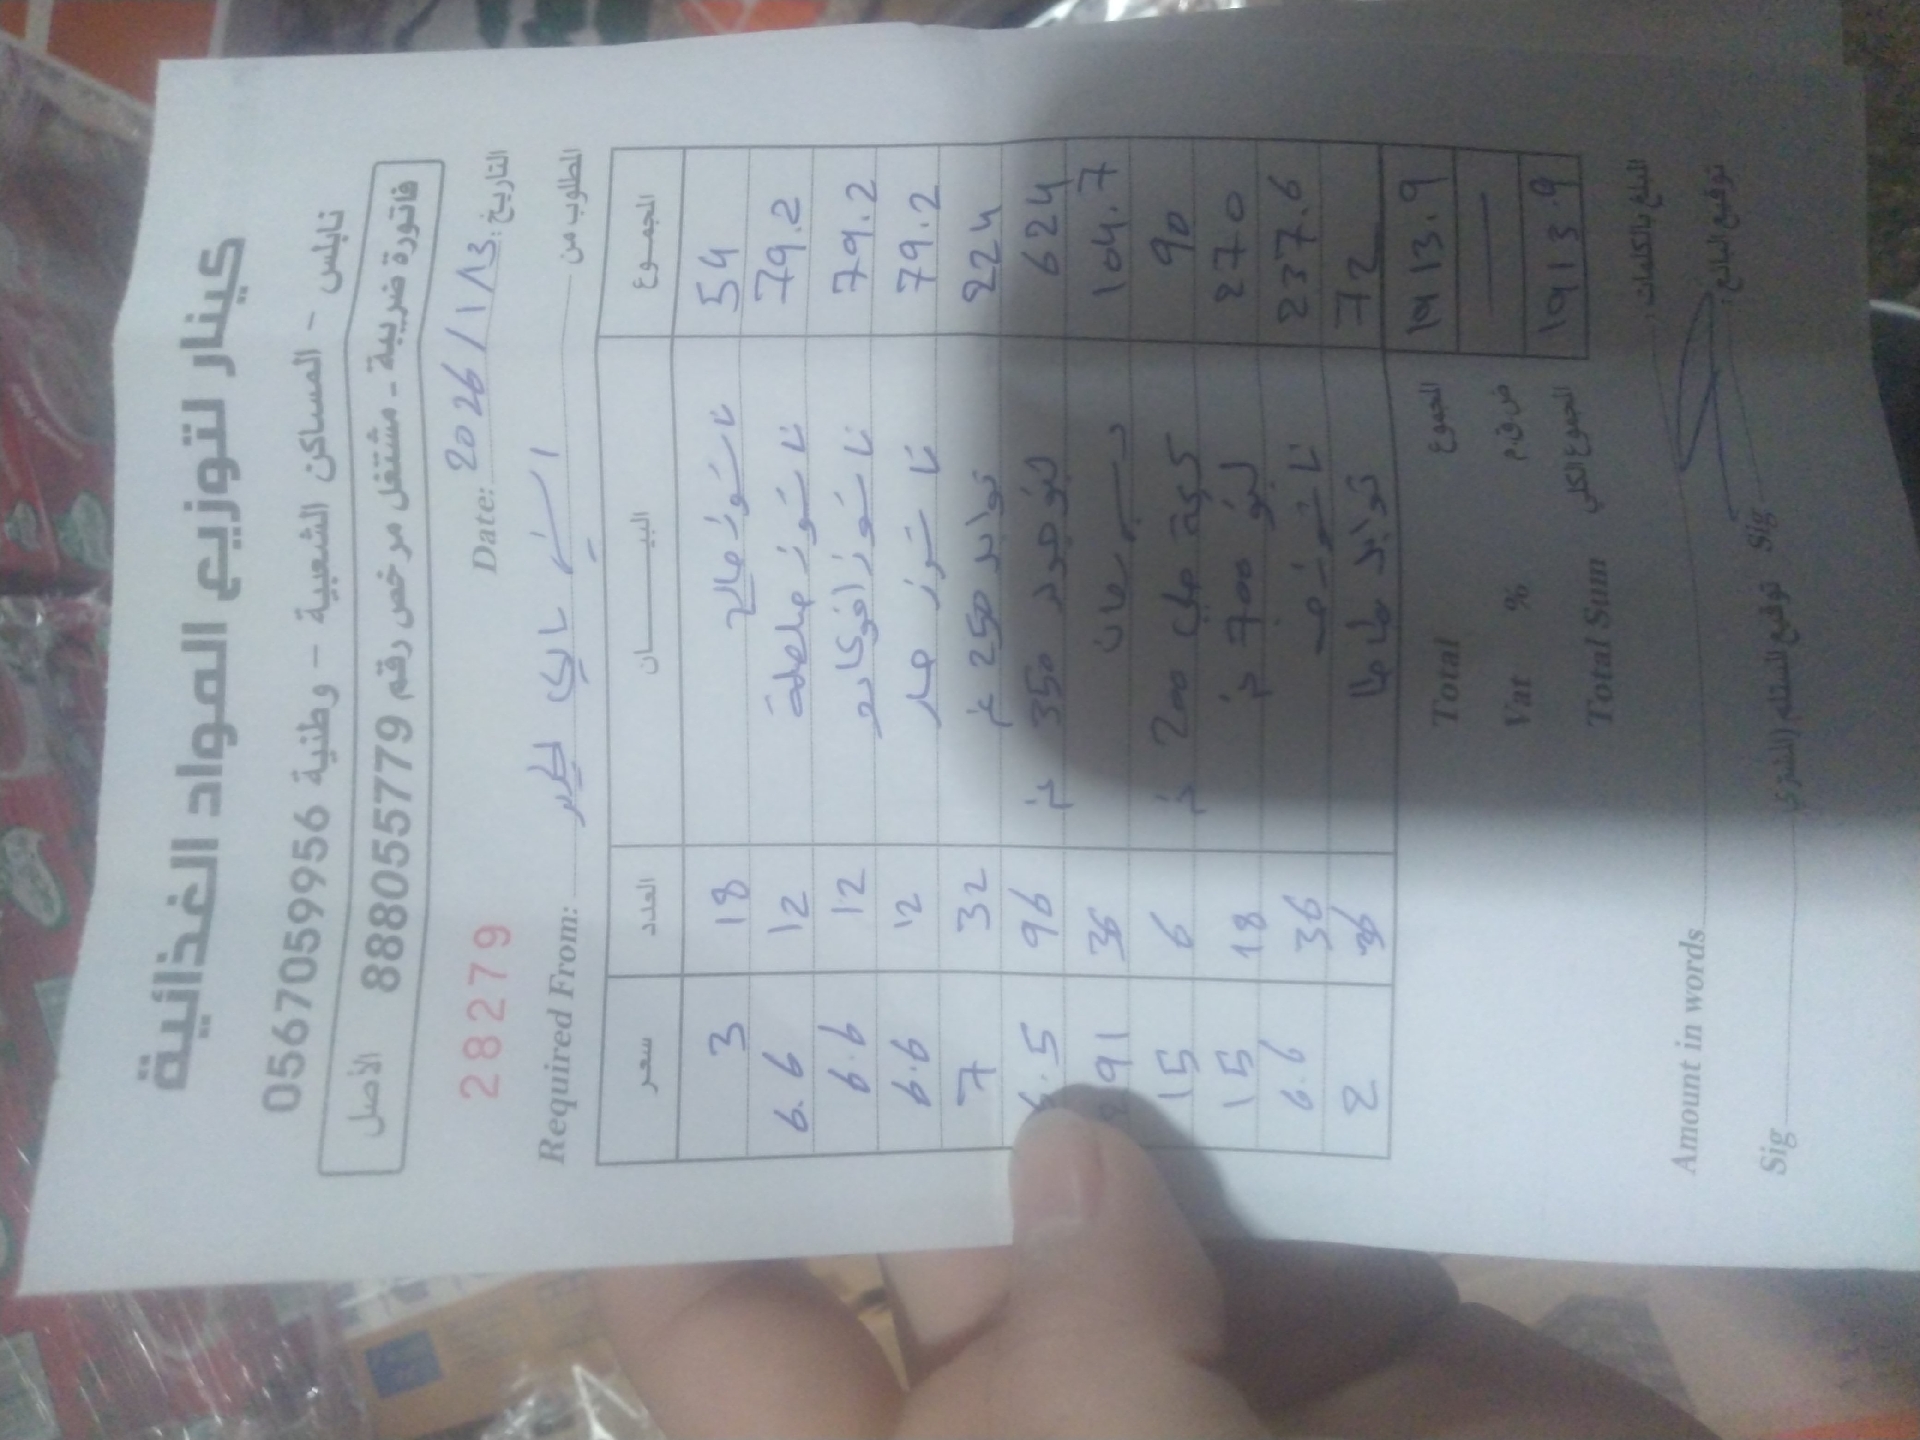 كينار لتوزيع المواد الغذائية
نابلس - المساكن الشعبية - وطنية 0567059956
فاتورة ضريبية - مشتغل مرخص رقم 888055779 الأصل
التاريخ: 2026/1/13 Date:
28279
المطلوب من Required From:
المجموع البيــــــان العدد سعر
54 ناشونز مالح 18 3
79.2 ناشونز 12 6.6
79.2 ناشونز 12 6.6
79.2 ناشونز 12 6.6
224 250 غ 32 7
624 350 غ 96 6.5
104.7 36 91
90 200 غ 6 15
270 700 غ 18 15
237.6 36 6.6
72 36 2
1913.9 المجموع Total
ض.ق.م % Vat
1913.9 المجموع الكلي Total Sum
المبلغ بالكلمات: Amount in words
توقيع البائع: Sig توقيع المستلم (المشتري) Sig